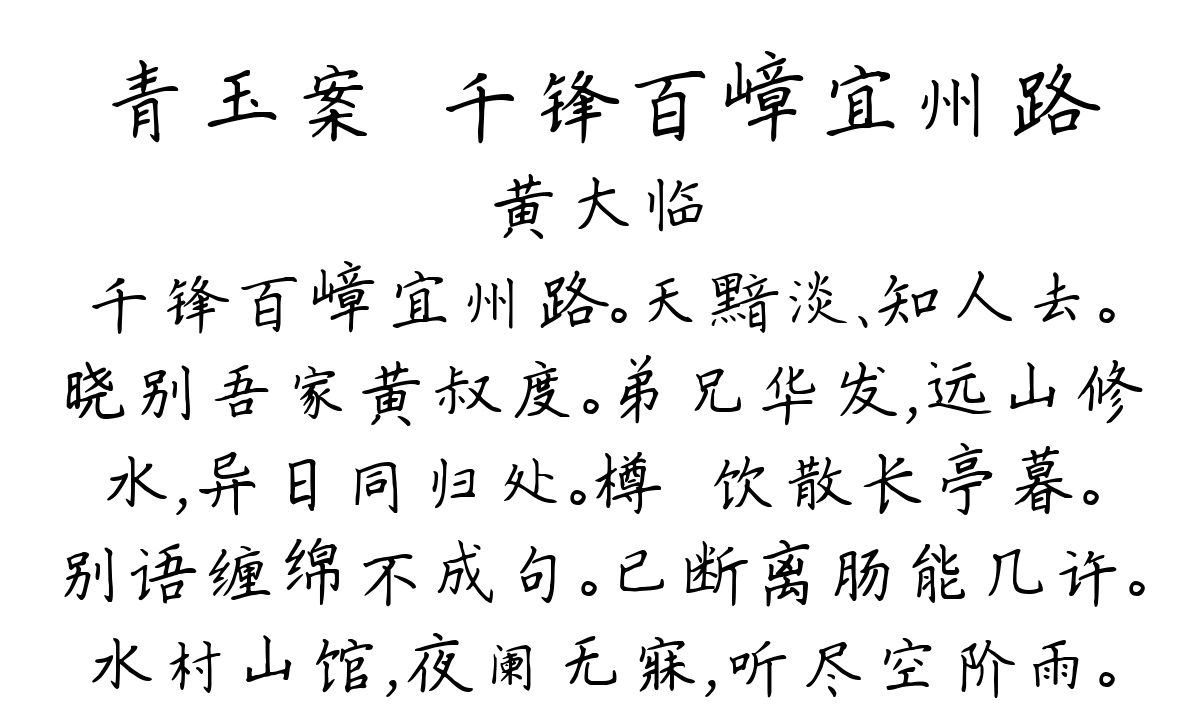 青玉案 千锋百嶂宜州路
黄大临
千锋百嶂宜州路。天黯淡、知人去。
晓别吾家黄叔度。弟兄华发,远山修
水,异日同归处。樽 饮散长亭暮。
别语缠绵不成句。已断离肠能几许。
水村山馆,夜阑无寐,听尽空阶雨。